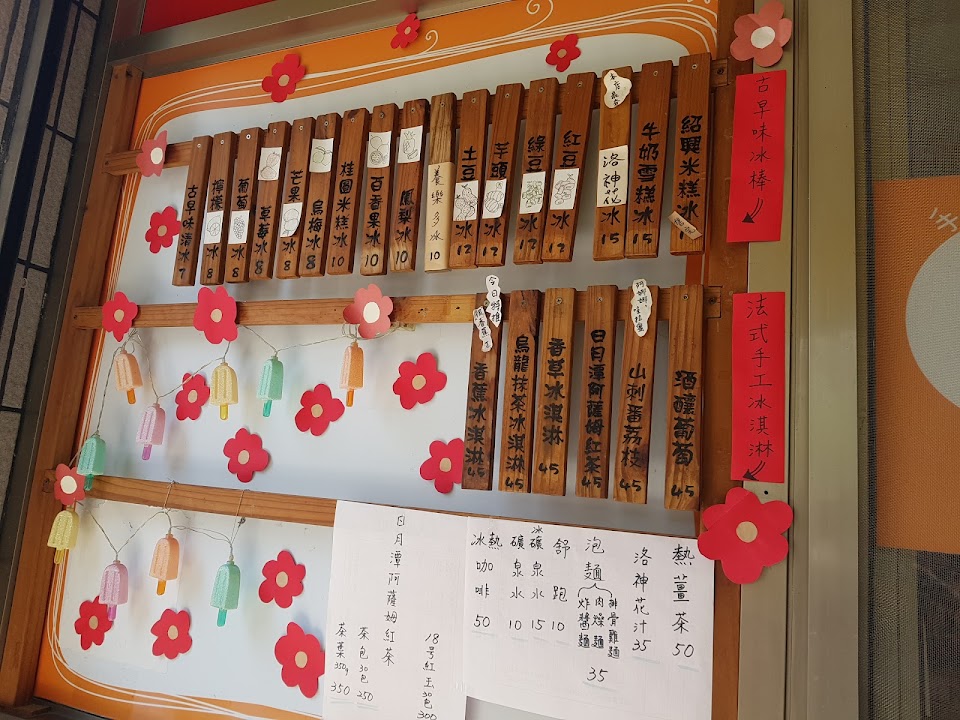 古早味冰棒
紹興米糕冰
牛奶雪糕冰 15
洛神花冰 15
紅豆冰 12
綠豆冰 12
芋頭冰 12
土豆冰 12
養樂多冰 10
鳳梨冰 10
百香果冰 10
桂圓米糕冰 10
烏梅冰 8
芒果冰 8
草莓冰 8
葡萄冰 8
檸檬冰 8
古早味清冰 7
法式手工冰淇淋
酒釀葡萄 45
山刺番荔枝 45
日月潭阿薩姆紅茶 45
香草冰淇淋 45
烏龍抹茶冰淇淋 45
今日特推
香蕉冰淇淋 45
熱薑茶 50
洛神花汁 35
泡麵
排骨雞麵
肉燥麵
炸醬麵
35
舒跑 10
冰礦泉水 15
礦泉水 10
冰熱咖啡 50
日月潭阿薩姆紅茶
18号紅玉30包 300
茶包30包 250
茶葉350g 350